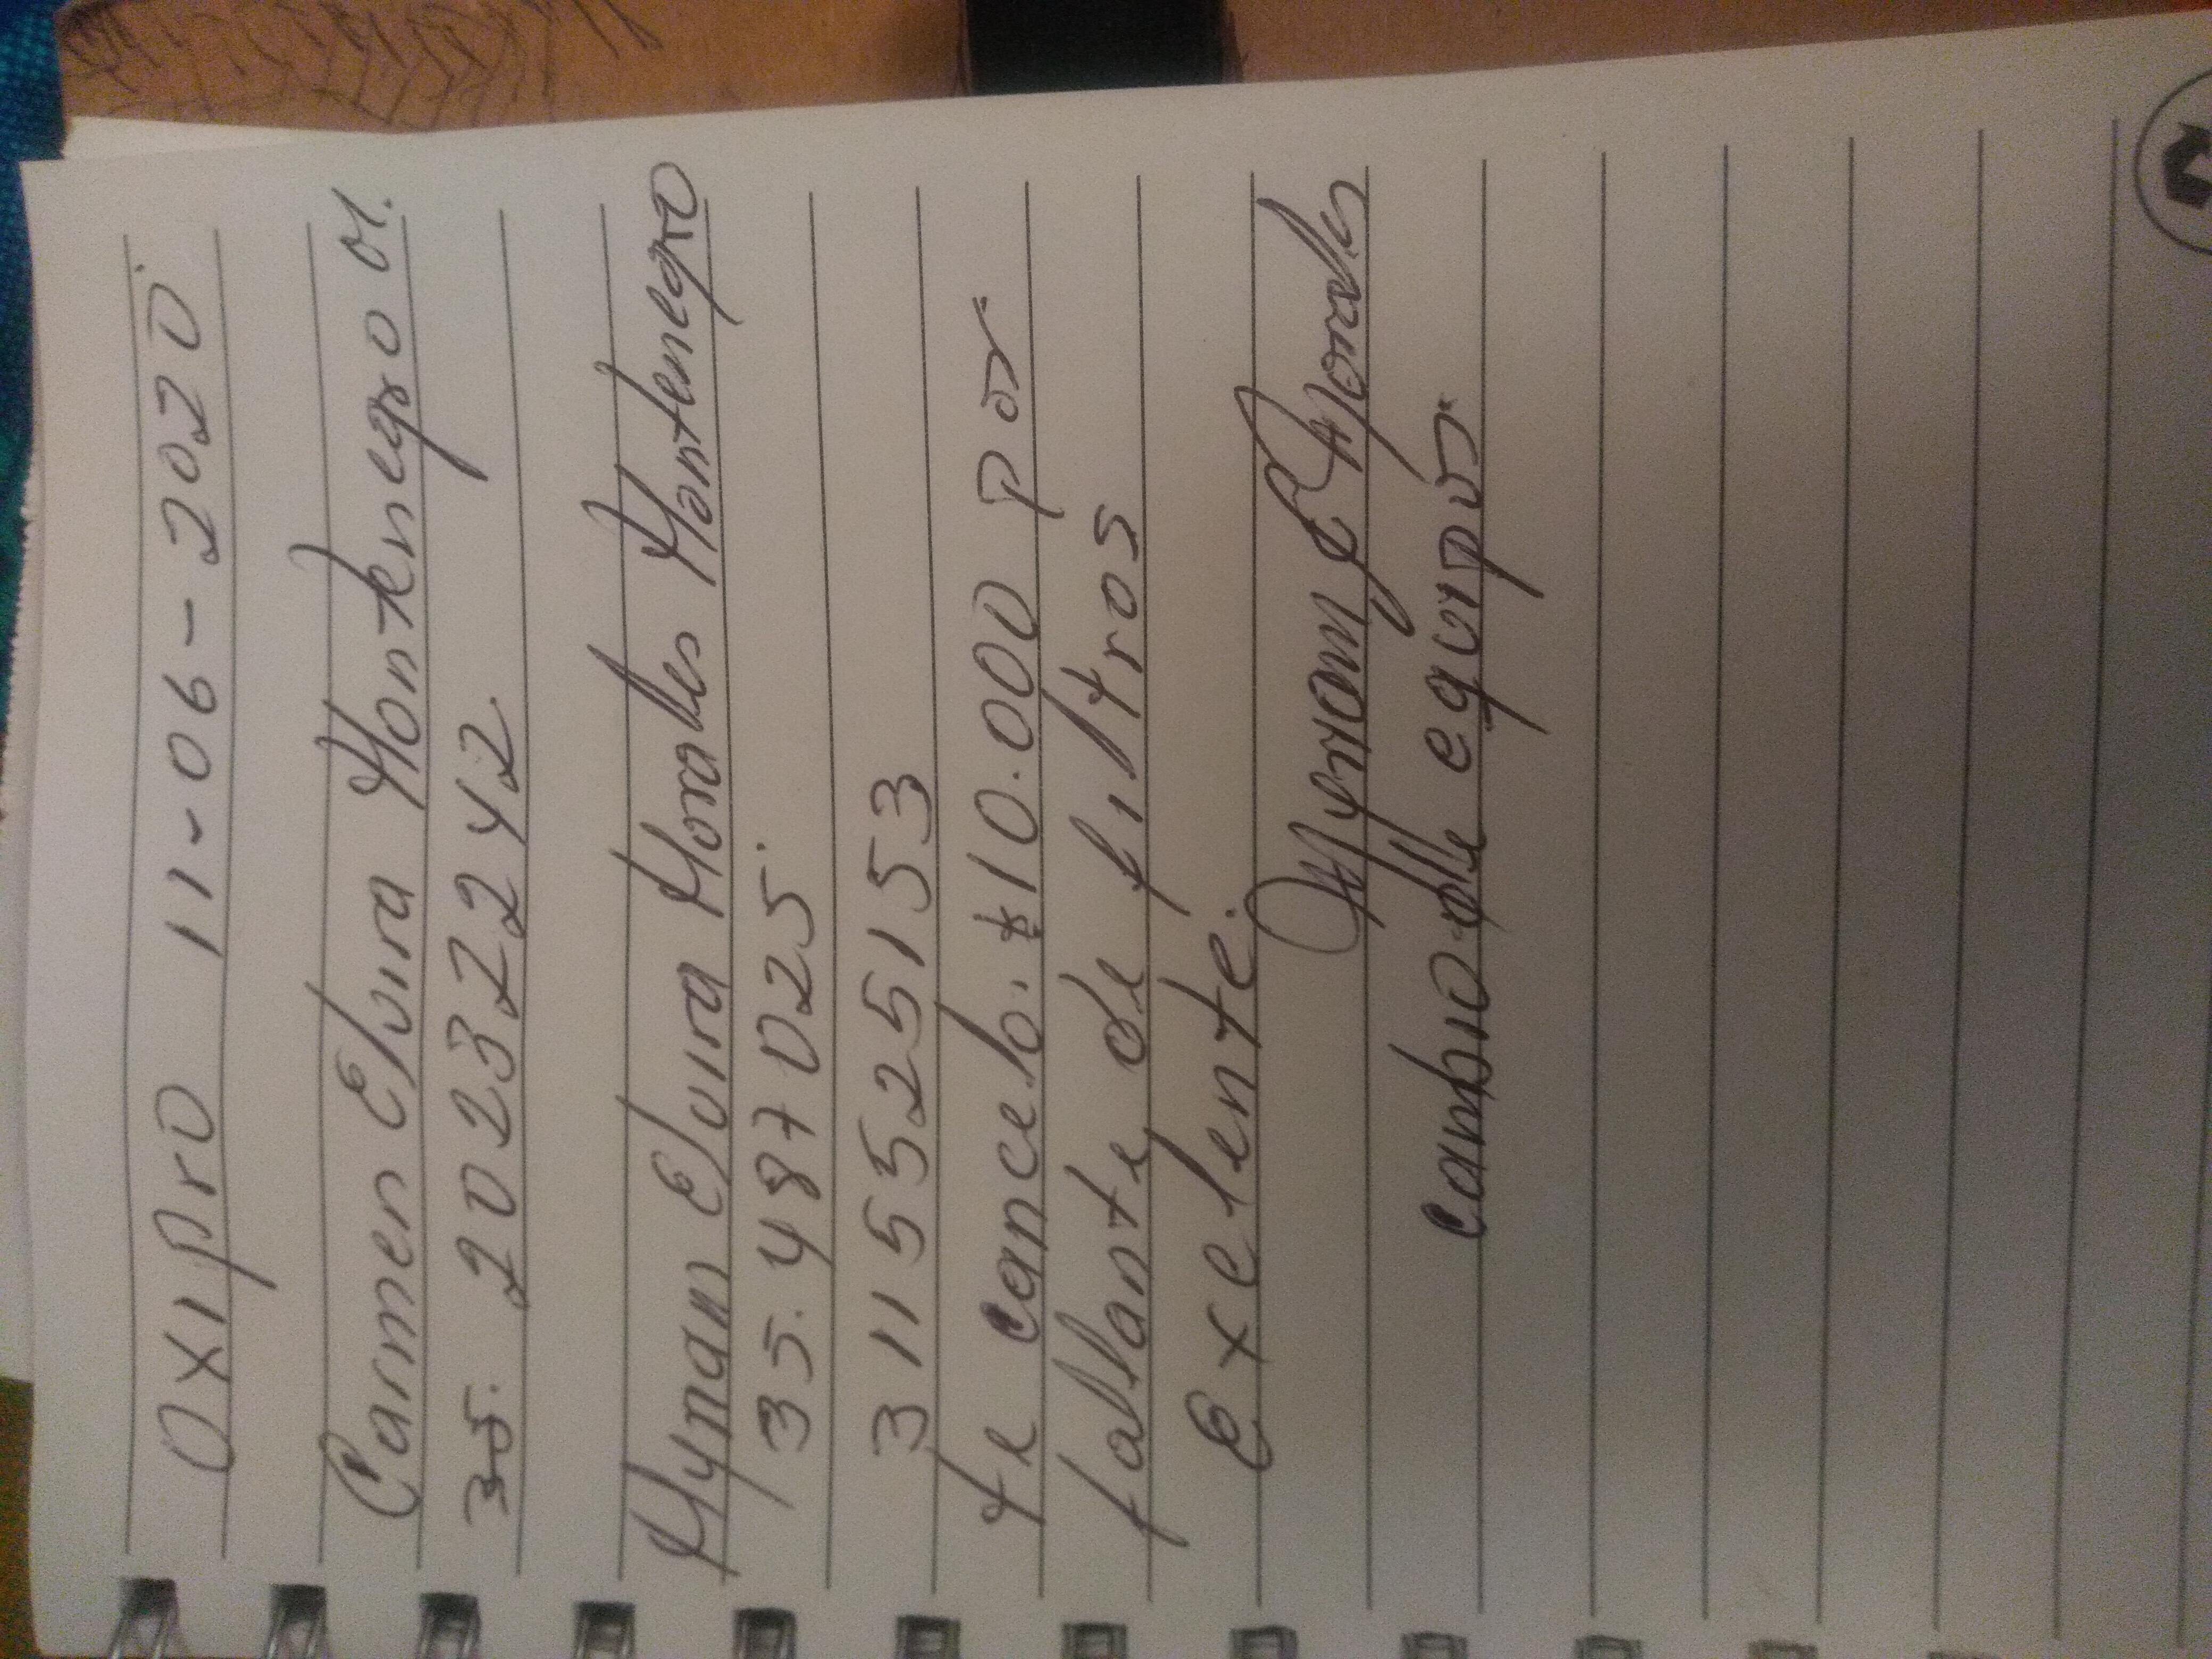 Oxipro 11-06-2020
Carmen Elvira Montenegro M.
35. 20237242
Myriam Elvira Morales Montenegro
35.487025.
3115525153
te cancelo. $10.000 por
faltante de filtros
Exelente.
Myriam E Morales
cambio de equipo.